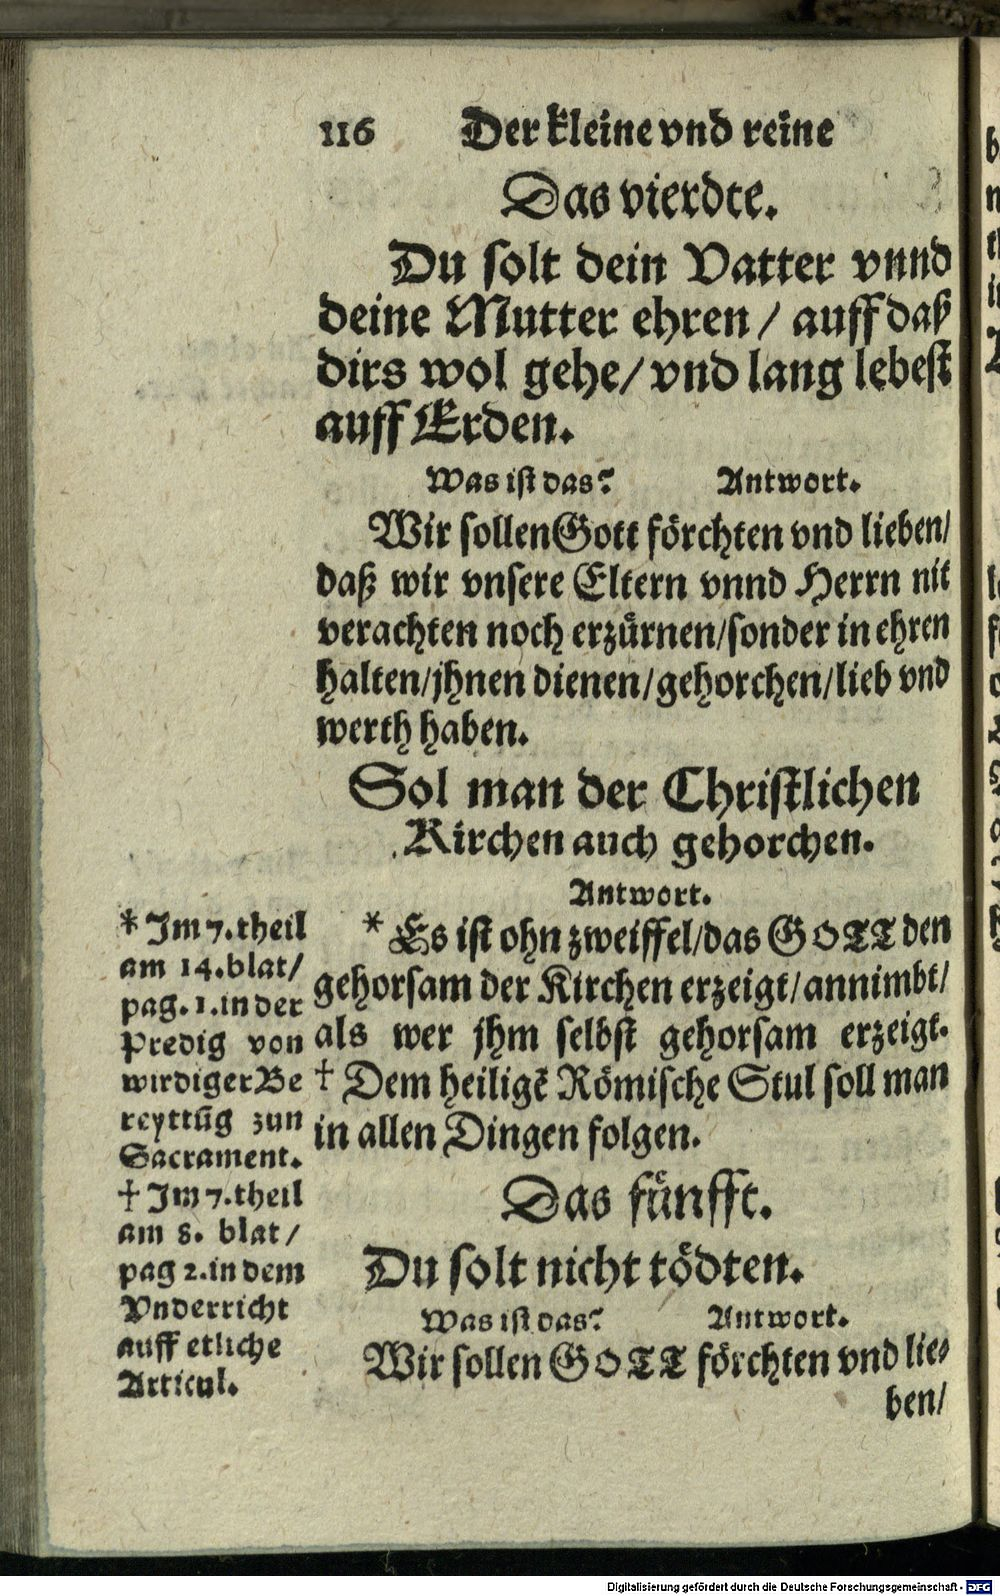 116 Der kleine vnd reine
Das vierdte.
Du solt dein Vatter vnnd
deine Mutter ehren / auff daß
dirs wol gehe/ vnd lang lebest
auff Erden.
Was ist das? Antwort.
Wir sollen Gott förchten vnd lieben/
daß wir vnsere Eltern vnnd Herrn nit
verachten noch erzürnen/sonder in ehren
halten/jhnen dienen/gehorchen/lieb vnd
werth haben.
Sol man der Christlichen
Kirchen auch gehorchen.
Antwort.
* Es ist ohn zweiffel/das GOTT den
gehorsam der Kirchen erzeigt/annimbt/
als wer jhm selbst gehorsam erzeigt.
† Dem heiligẽ Römische Stul soll man
in allen Dingen folgen.
* Im 7. theil
am 14. blat/
pag. 1. in der
Predig von
wirdiger Be
reyttũg zun
Sacrament.
† Im 7. theil
am 8. blat/
pag 2. in dem
Vnderricht
auff etliche
Articul.
Das fünfft.
Du solt nicht tödten.
Was ist das? Antwort.
Wir sollen GOTT förchten vnd lie-
ben/
Digitalisierung gefördert durch die Deutsche Forschungsgemeinschaft - DFG